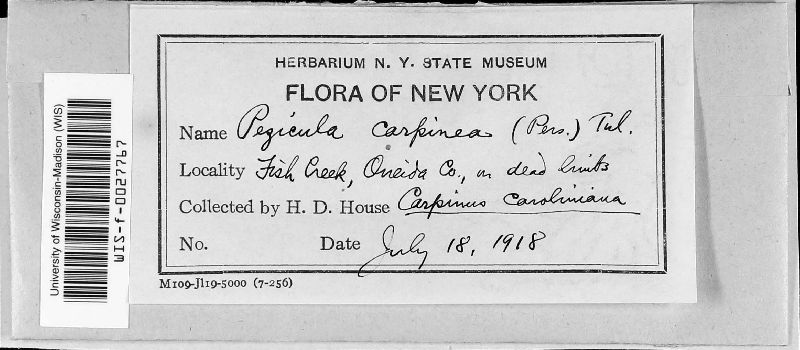 HERBARIUM N. Y. STATE MUSEUM
FLORA OF NEW YORK
Name Pezicula carpinea (Pers.) Tul.
Locality Fish Creek, Oneida Co., on dead limbs
Collected by H. D. House Carpinus caroliniana
No. Date July 18, 1918
M109-Jl19-5000 (7-256)
University of Wisconsin-Madison (WIS)
WIS-f-0027767